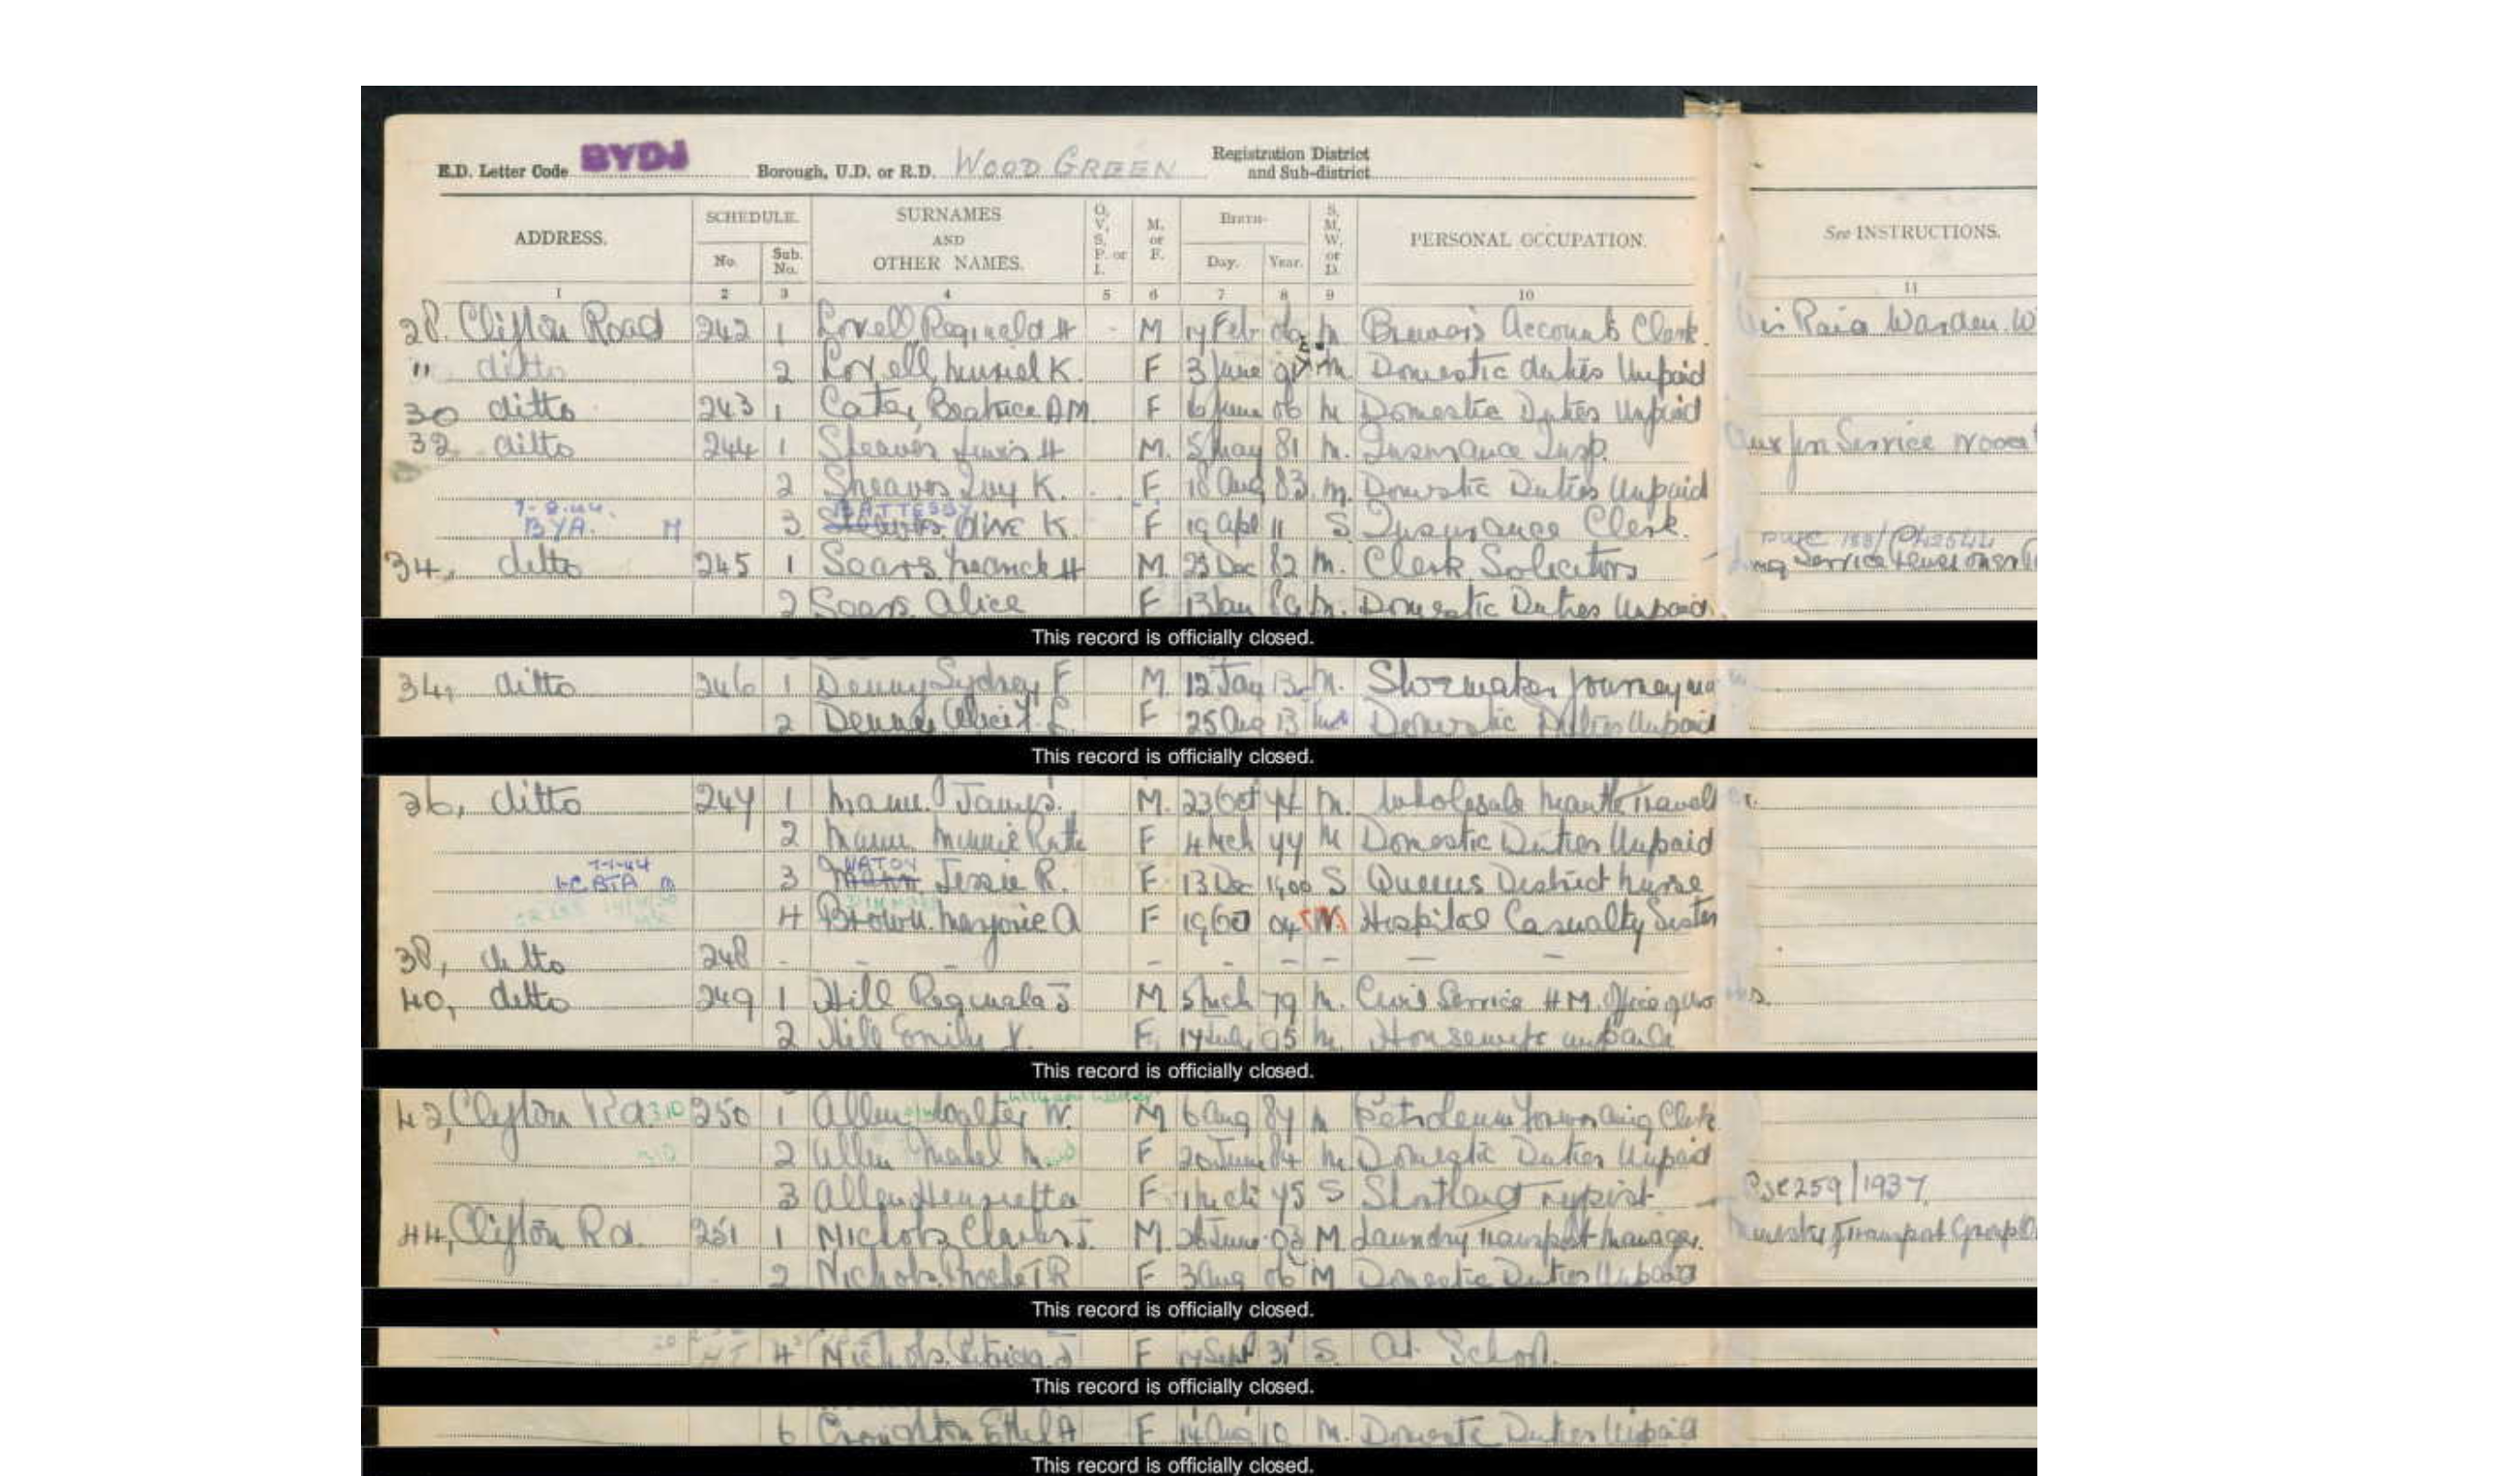 E.D. Letter Code BYDJ Borough, U.D. or R.D. WOOD GREEN Registration District and Sub-district
ADDRESS. SCHEDULE. No. Sub. No. SURNAMES AND OTHER NAMES. O, V, S, P. or I. M. or F. BIRTH- Day. Year. S, M, W, or D. PERSONAL OCCUPATION. See INSTRUCTIONS.
1 2 3 4 5 6 7 8 9 10 11
28. Clifton Road 242 1 Lovell Reginald H - M 17 Feb M Brewer's Accounts Clerk. Raid Warden. W
" ditto 2 Lovell, Muriel K. F 3 June M Domestic duties Unpaid
30 ditto 243 1 Cater, Beatrice A M. F 6 June 06 M Domestic Duties Unpaid
32 ditto 244 1 H M. 5 May 81 M. Insurance Insp. Aux Service
2 Ivy K. F 18 Aug 83 M. Domestic Duties Unpaid
BYA. M 3 BATTESBY Olive K. F 19 Apl 11 S Insurance Clerk.
34, ditto 245 1 Sears, H M. 23 Dec 82 M. Clerk Solicitors Service
2 Sears Alice F 13 Jan M. Domestic Duties Unpaid.
This record is officially closed.
34, ditto 246 1 Denny Sydney F M. 12 M. Shoemaker
2 Denny F 25 Aug 13 Domestic Duties Unpaid
This record is officially closed.
36, ditto 247 1 Mann James. M. 23 Oct 74 M. Wholesale Mantle Traveller.
2 Mann Minnie F 4 Mch 77 M Domestic Duties Unpaid
3 Mann Jessie R. F 13 Dec 1900 S Queens District Nurse
4 Brown. Marjorie A F 19 04 Hospital Casualty Sister
38, ditto 248 - - - - - - - - -
40, ditto 249 1 Hill Reginald J M 5 Mch 79 M. Civil Service H.M. Office
2 Hill Emily F. 17 July 95 M. Housewife unpaid
This record is officially closed.
42, Clifton Rd. 310 250 1 Allen Walter W. M 6 Aug 87 M Petroleum Clerk
2 Allen Mabel M. F 20 June 84 M. Domestic Duties Unpaid
3 Allen Henrietta F 1 Mch 75 S Shorthand Typist 259/1937
44, Clifton Rd. 251 1 Nichols Charles J. M. 26 June 03 M Laundry Transport Manager. Transport Group
2 Nichols. F 3 Aug 06 M Domestic Duties Unpaid
This record is officially closed.
4 Nichols. Patricia J F 17 Sept 31 S. At School.
This record is officially closed.
6 Creighton Ethel A F 14 Aug 10 M. Domestic Duties Unpaid
This record is officially closed.